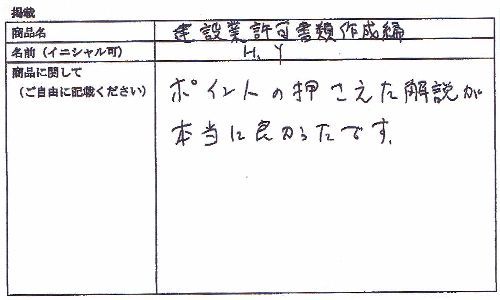 掲載
商品名 建設業許可書類作成編
名前（イニシャル可） H.Y
商品に関して
（ご自由に記載ください）
ポイントの押さえた解説が
本当に良かったです。